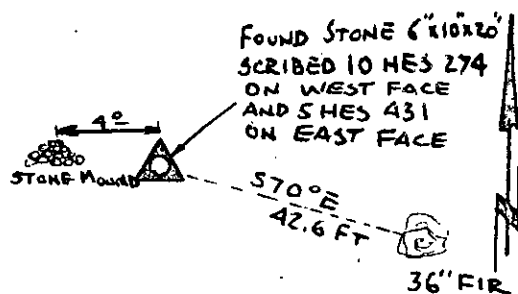 FOUND STONE 6"x10"x20"
SCRIBED 10 HES 274
ON WEST FACE
AND 5 HES 431
ON EAST FACE
4º
STONE MOUND
S70°E
42.6 FT
36" FIR